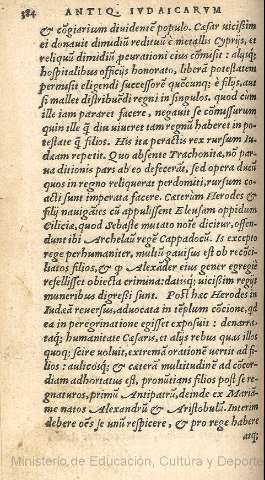 384 ANTIQ. IVDAICARVM
& cōgiarium diuidentē populo. Cæsar uicißim
ei donauit dimidiū redituū è metallis Cyprijs, et
reliquū dimidiū ꝓcurationi eius cōmisit: alijsq;
hospitalibus officijs honorato, liberā potestatem
permisit eligendi successorē quēcunq; è filijs, aut
si mallet distribuēdi regni in singulos. quod cum
ille iam pararet facere, negauit se cōmissurum
quin ille q̄ diu uiueret tam regnū haberet in po-
testate q̄ filios. His ita peractis rex rursum Iu-
dæam repetit. Quo absente Trachonitæ, nō par-
ua ditionis pars ab eo defecerāt, sed opera ducū
quos in regno reliquerat perdomiti, rursum co-
acti sunt imperata facere. Cæterūm Herodes et
filij nauigātes cū appulissent Eleusam oppidum
Ciliciæ, quod Sebaste mutato noīe dicitur, offen-
dunt ibi Archelaū regē Cappadocū. Is excepto
rege perhumaniter, multū gauisus est ob recōci-
liatos filios, & ꝙ Alexāder eius gener egregiè
refellisset obiecta crimina: datisq; uicißim regijs
muneribus digreßi sunt. Post hæc Herodes in
Iudæā reuersus, aduocata in tēplum cōcione, q̄d
ea in peregrinatione egisset exposuit: denarra-
taq; humanitate Cæsaris, et alijs rebus quas illos
quoq; scire uoluit, extremā orationē uertit ad fi-
lios: aulicosq; & cæterā multitudinē ad cōcor-
diam adhortatus est, pronūtians filios post se re-
gnaturos, primū Antipatrū, deinde ex Mariā-
me natos Alexandrū & Aristobulū. Interim
debere oēs se unū respicere, & pro rege habere
atq;
Ministerio de Educación, Cultura y Deporte